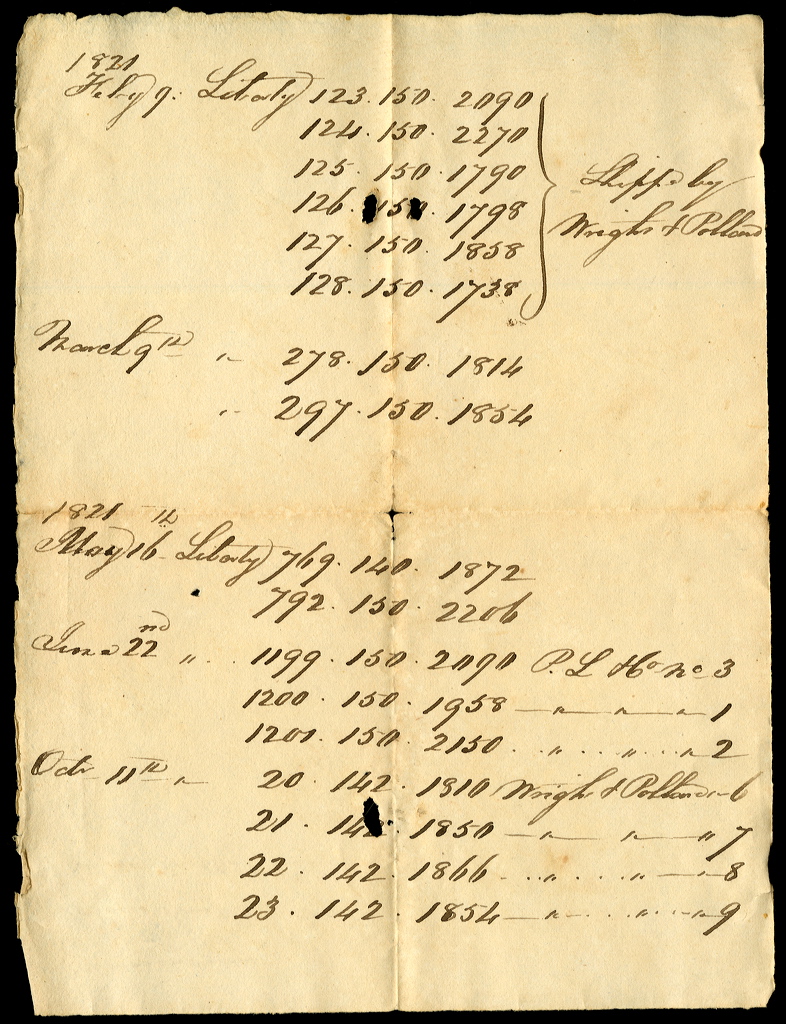 1821
Feby 9. Liberty 123. 150. 2090
124. 150. 2270
125. 150. 1790
126. 150. 1798
127. 150. 1858
128. 150. 1738
Shippd by
Wright & Pollard
March 9th " 278. 150. 1814
" 297. 150. 1854
1821 th
May 16 Liberty 769. 140. 1872
792. 150. 2206
June 22nd " 1199. 150. 2090 P. L Ho no 3
1200. 150. 1958 — " — " — " 1
1201. 150. 2150 . . " . . " . . " 2
Octr 11th " 20. 142. 1910 Wright & Pollard " 6
21. 142. 1850 — " — " — " 7
22. 142. 1866 . . " . . " — " 8
23. 142. 1854 — " . . . " . . " 9